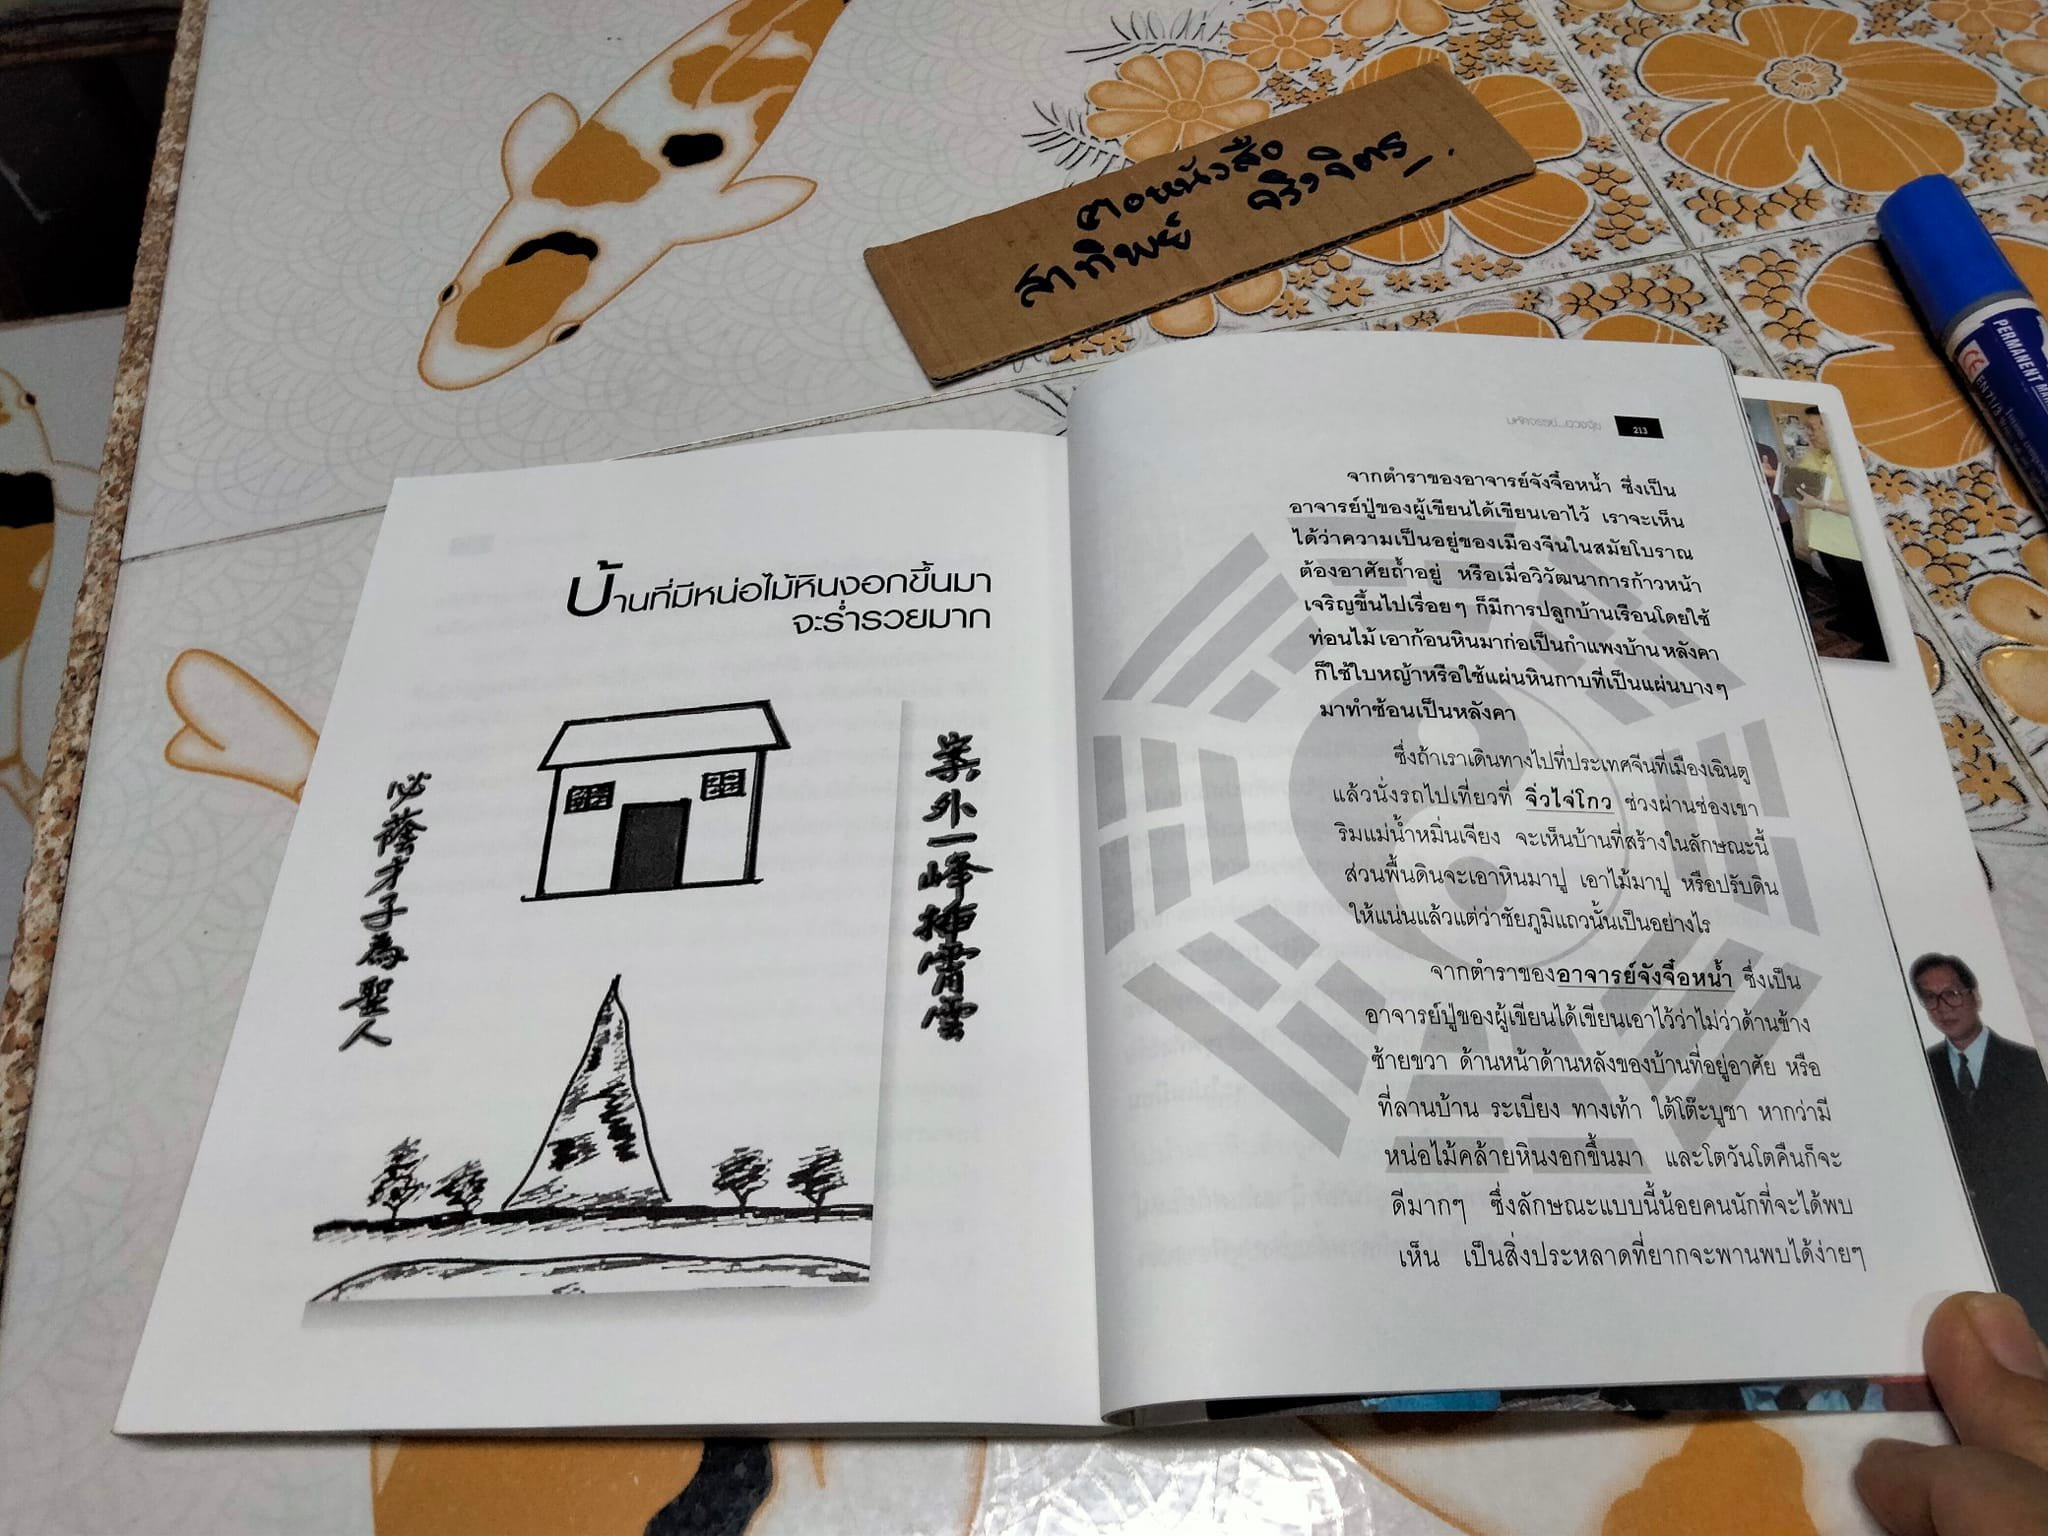 ตอหนังสือ
สาทิพย์ จริงจิตร
PERMANENT
EN 71/3
บ้านที่มีหน่อไม้หินงอกขึ้นมา
จะร่ำรวยมาก
案外一峰插霄雲
必蔭才子為聖人
มหัศจรรย์...ฮวงจุ้ย 213
จากตำราของอาจารย์จังจื๋อหน้ำ ซึ่งเป็น
อาจารย์ปู่ของผู้เขียนได้เขียนเอาไว้ เราจะเห็น
ได้ว่าความเป็นอยู่ของเมืองจีนในสมัยโบราณ
ต้องอาศัยถ้ำอยู่ หรือเมื่อวิวัฒนาการก้าวหน้า
เจริญขึ้นไปเรื่อยๆ ก็มีการปลูกบ้านเรือนโดยใช้
ท่อนไม้ เอาก้อนหินมาก่อเป็นกำแพงบ้าน หลังคา
ก็ใช้ใบหญ้าหรือใช้แผ่นหินกาบที่เป็นแผ่นบางๆ
มาทำซ้อนเป็นหลังคา
ซึ่งถ้าเราเดินทางไปที่ประเทศจีนที่เมืองเฉินตู
แล้วนั่งรถไปเที่ยวที่ จิ่วไจ่โกว ช่วงผ่านช่องเขา
ริมแม่น้ำหมิ่นเจียง จะเห็นบ้านที่สร้างในลักษณะนี้
ส่วนพื้นดินจะเอาหินมาปู เอาไม้มาปู หรือปรับดิน
ให้แน่นแล้วแต่ว่าชัยภูมิแถวนั้นเป็นอย่างไร
จากตำราของอาจารย์จังจื๋อหน้ำ ซึ่งเป็น
อาจารย์ปู่ของผู้เขียนได้เขียนเอาไว้ว่าไม่ว่าด้านข้าง
ซ้ายขวา ด้านหน้าด้านหลังของบ้านที่อยู่อาศัย หรือ
ที่ลานบ้าน ระเบียง ทางเท้า ใต้โต๊ะบูชา หากว่ามี
หน่อไม้คล้ายหินงอกขึ้นมา และโตวันโตคืนก็จะ
ดีมากๆ ซึ่งลักษณะแบบนี้น้อยคนนักที่จะได้พบ
เห็น เป็นสิ่งประหลาดที่ยากจะพานพบได้ง่ายๆ